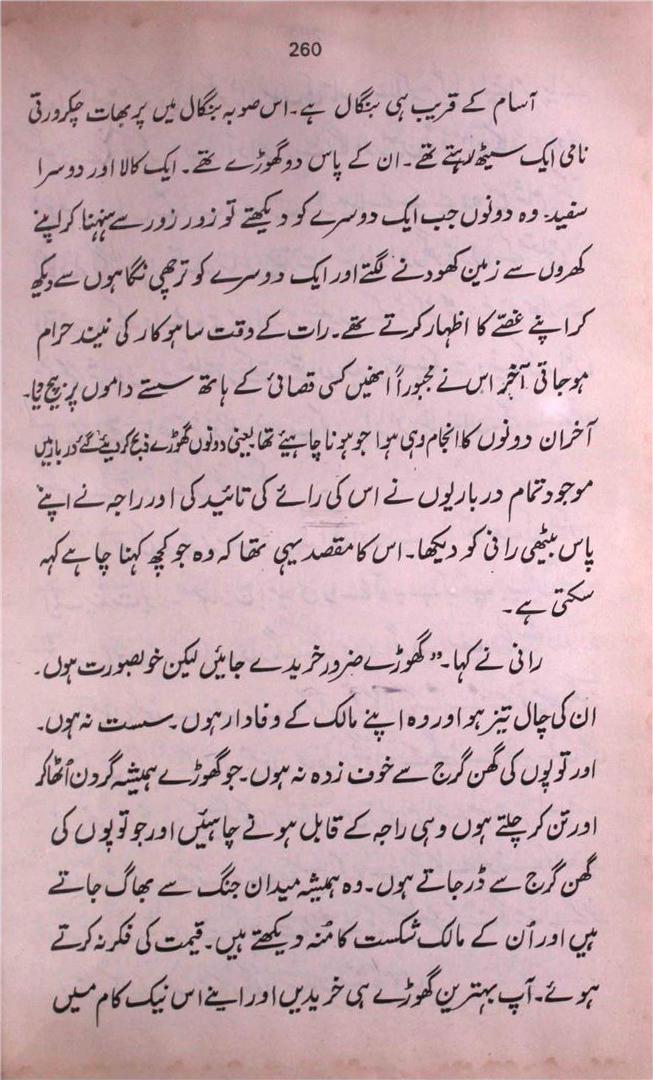 260
آسام کے قریب ہی بنگال ہے۔ اس صوبہ بنگال میں پربھات چکرورتی
نامی ایک سیٹھ رہتے تھے۔ ان کے پاس دو گھوڑے تھے۔ ایک کالا اور دوسرا
سفید۔ وہ دونوں جب ایک دوسرے کو دیکھتے تو زور زور سے ہنہنا کر اپنے
کھروں سے زمین کھودنے لگتے اور ایک دوسرے کو ترچھی نگاہوں سے دیکھ
کر اپنے غصے کا اظہار کرتے تھے۔ رات کے وقت ساہوکار کی نیند حرام
ہو جاتی آخر اس نے مجبوراً انھیں کسی قصائی کے ہاتھ سستے داموں پر بیچ دیا۔
آخر ان دونوں کا انجام وہی ہوا جو ہونا چاہیئے تھا یعنی دونوں گھوڑے ذبح کر دیئے گئے دربار میں
موجود تمام درباریوں نے اس کی رائے کی تائید کی اور راجہ نے اپنے
پاس بیٹھی رانی کو دیکھا۔ اس کا مقصد یہی تھا کہ وہ جو کچھ کہنا چاہے کہہ
سکتی ہے۔
رانی نے کہا۔ "گھوڑے ضرور خریدے جائیں لیکن خوبصورت ہوں۔
ان کی چال تیز ہو اور وہ اپنے مالک کے وفادار ہوں۔ سست نہ ہوں۔
اور توپوں کی گھن گرج سے خوف زدہ نہ ہوں۔ جو گھوڑے ہمیشہ گردن اُٹھا کر
اور تن کر چلتے ہوں وہی راجہ کے قابل ہونے چاہئیں اور جو توپوں کی
گھن گرج سے ڈر جاتے ہوں۔ وہ ہمیشہ میدان جنگ سے بھاگ جاتے
ہیں اور اُن کے مالک شکست کا مُنہ دیکھتے ہیں۔ قیمت کی فکر نہ کرتے
ہوئے۔ آپ بہترین گھوڑے ہی خریدیں اور اپنے اس نیک کام میں